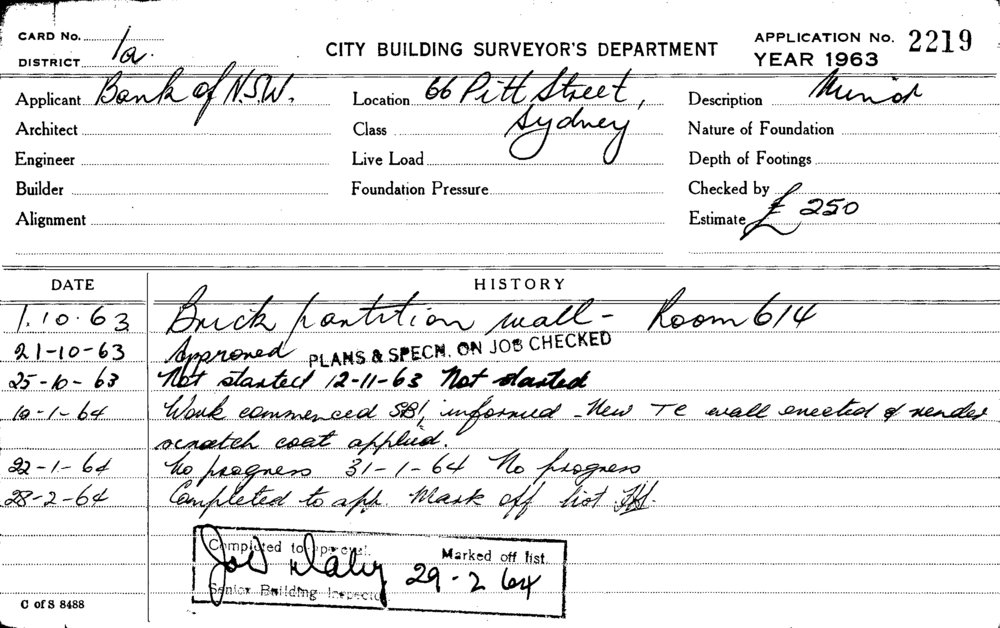 CARD No. 1a.
DISTRICT
CITY BUILDING SURVEYOR'S DEPARTMENT
APPLICATION No. 2219
YEAR 1963
Applicant Bank of N.S.W. Location 66 Pitt Street, Description Minor
Architect Class Sydney Nature of Foundation
Engineer Live Load Depth of Footings
Builder Foundation Pressure Checked by
Alignment Estimate £ 250
DATE HISTORY
1.10.63 Brick partition wall - Room 614
21-10-63 Approved PLANS & SPECN. ON JOB CHECKED
25-10-63 Not started 12-11-63 Not started
-1-64 Work commenced SBI, informed - New TC wall erected & render
scratch coat applied.
22-1-64 No progress 31-1-64 No progress
28-2-64 Completed to app. Mark off list
Completed to approval. Marked off list.
Daley 29-2 64
Senior Building Inspector
C of S 8488